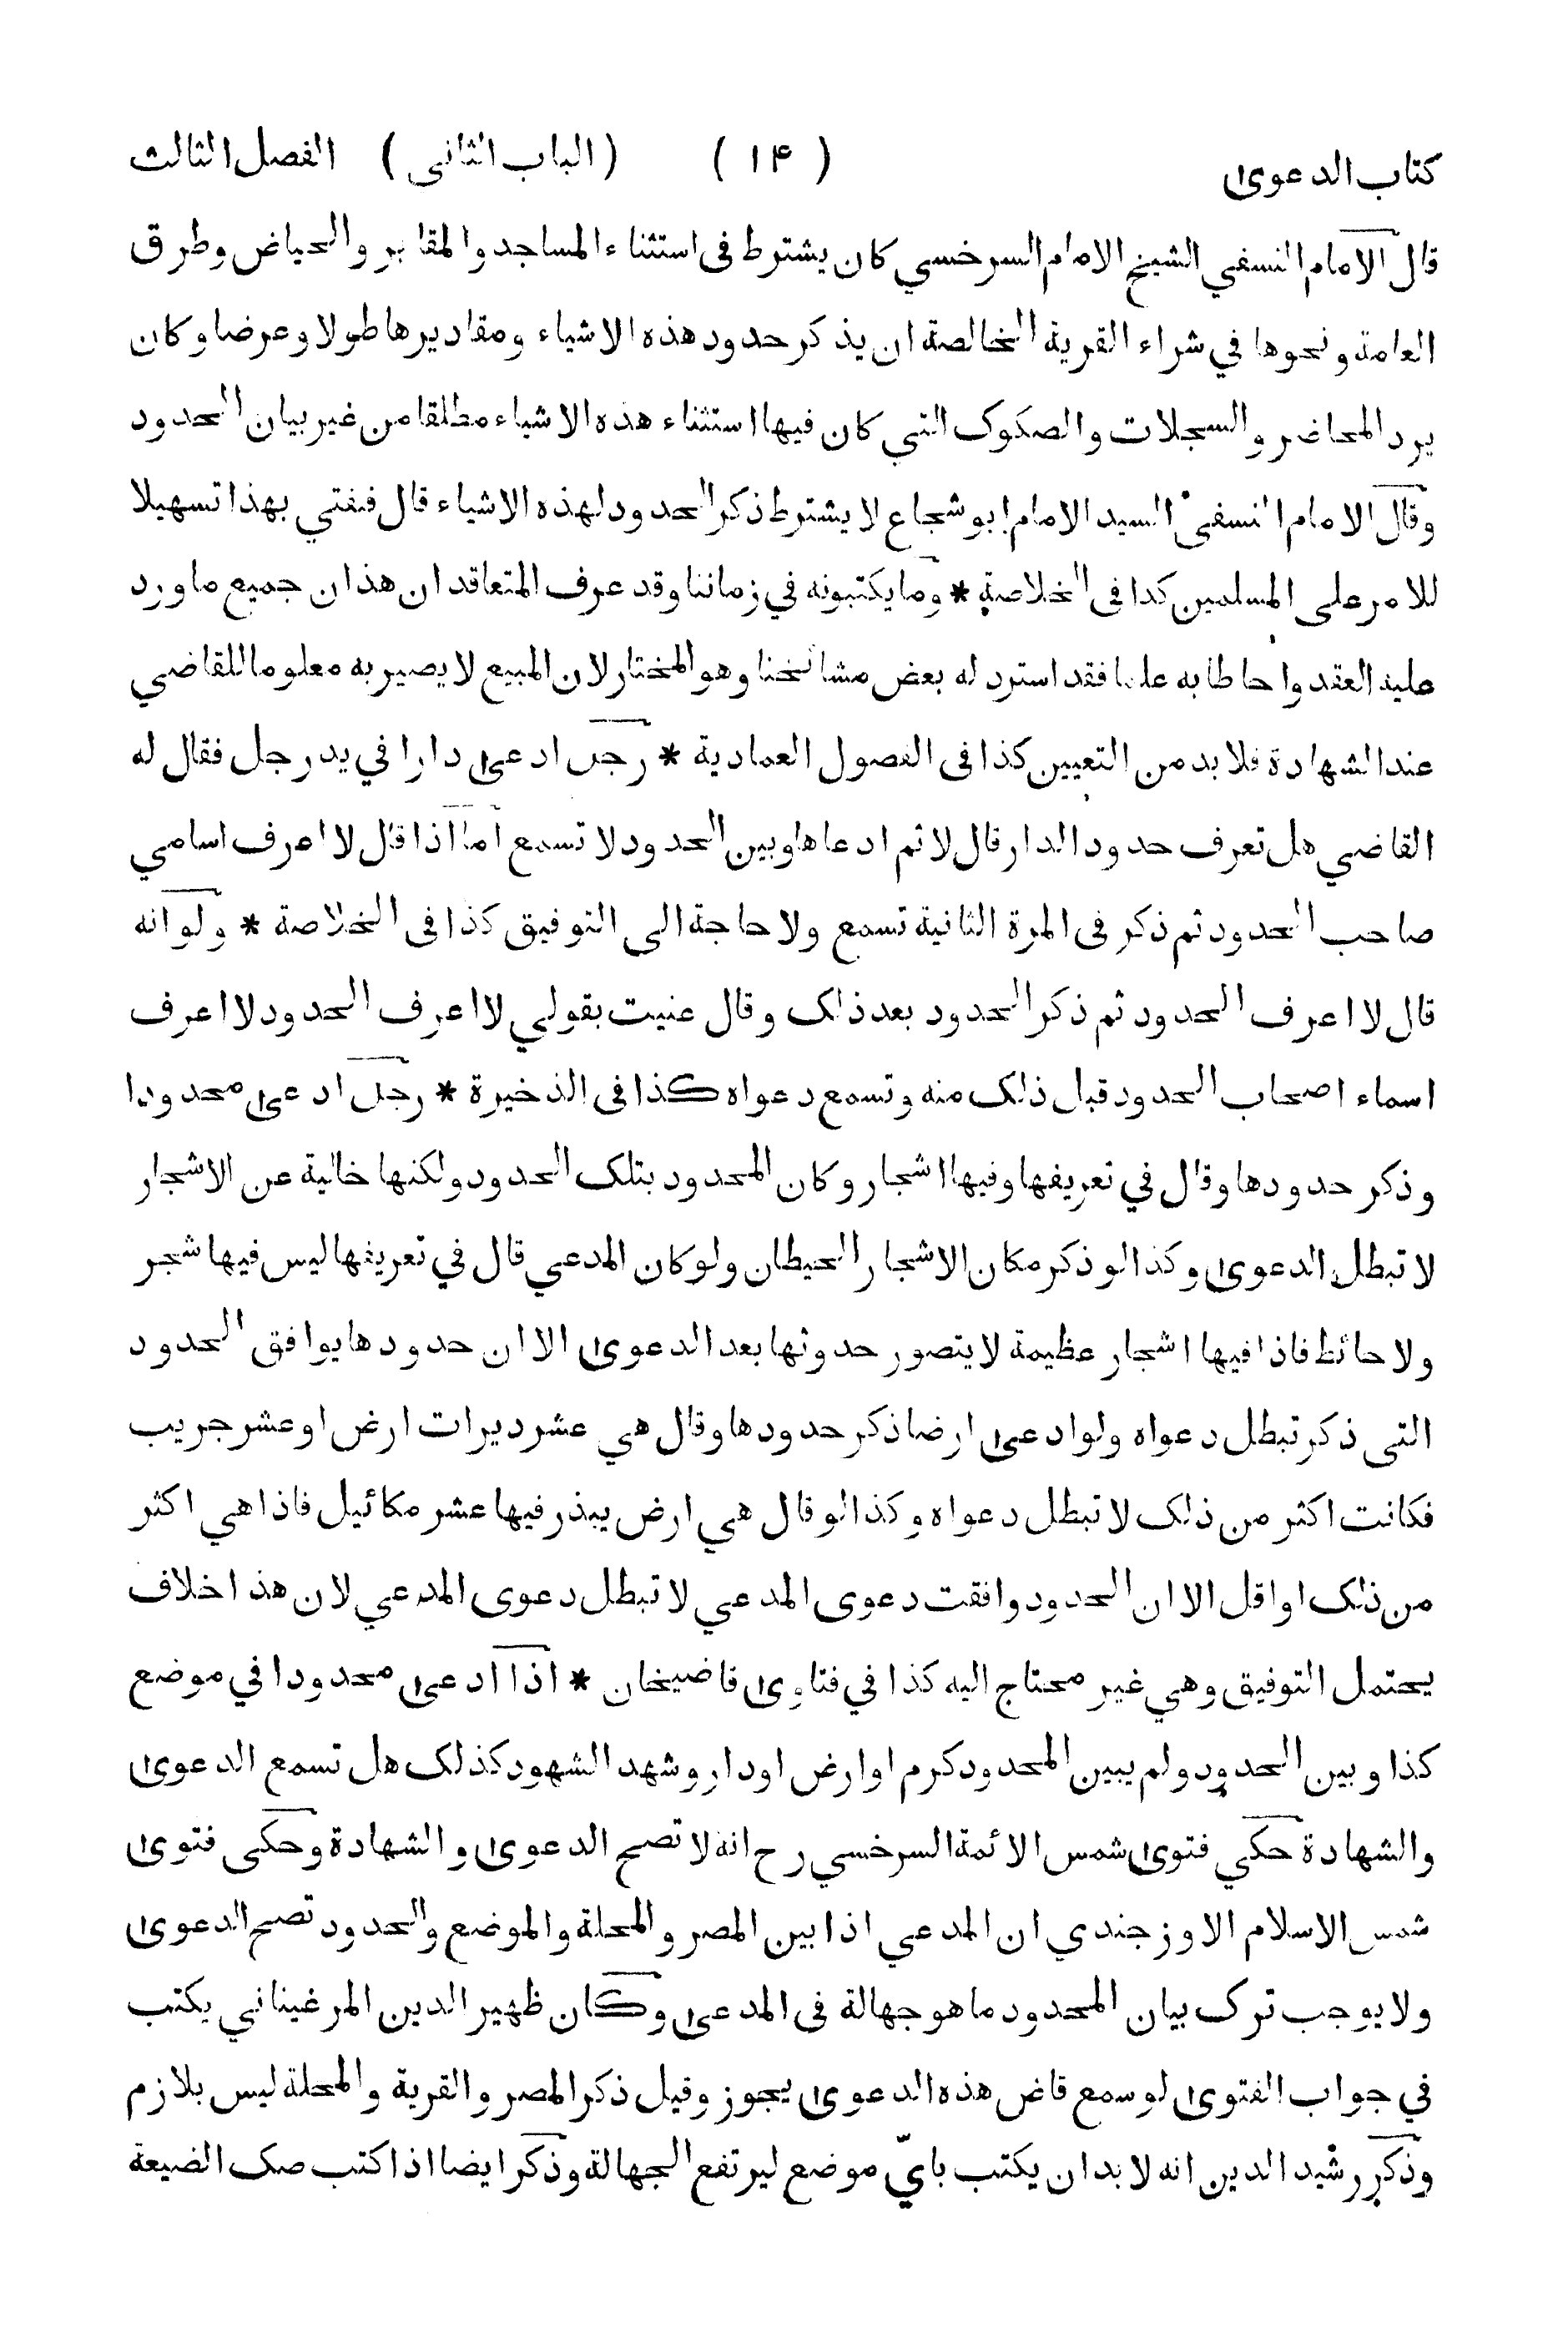 كتاب الدعوى (۱۴) (الباب الثاني) الفصل الثالث
قال الامام النسفي الشيخ الامام السرخسي كان يشترط فى استثناء المساجد والمقابر والحياض وطرق
العامة ونحوها في شراء القرية الخالصة ان يذكر حدود هذه الاشياء ومقاديرها طولا وعرضا وكان
يرد المحاضر والسجلات والصكوك التي كان فيها استثناء هذه الاشياء مطلقا من غير بيان الحدود
وقال الامام النسفي السيد الامام ابو شجاع لا يشترط ذكر الحدود لهذه الاشياء قال فنفتي بهذا تسهيلا
للامر على المسلمين كذا فى الخلاصة * وما يكتبونه في زماننا وقد عرف المتعاقدان هذان جميع ما ورد
عليه العقد واحاطا به علما فقد استرد له بعض مشائخنا وهو المختار لان المبيع لا يصير به معلوما للقاضي
عند الشهادة فلا بد من التعيين كذا فى الفصول العمادية * رجل ادعى دارا في يد رجل فقال له
القاضي هل تعرف حدود الدار قال لا ثم ادعاها وبين الحدود لا تسمع اما اذا قال لا اعرف اسامي
صاحب الحدود ثم ذكر فى المرة الثانية تسمع ولا حاجة الى التوفيق كذا فى الخلاصة * ولو انه
قال لا اعرف الحدود ثم ذكر الحدود بعد ذلك وقال عنيت بقولي لا اعرف الحدود لا اعرف
اسماء اصحاب الحدود قبل ذلك منه وتسمع دعواه كذا فى الذخيرة * رجل ادعى محدودا
وذكر حدودها وقال في تعريفها وفيها اشجار وكان المحدود بتلك الحدود ولكنها خالية عن الاشجار
لا تبطل الدعوى وكذا لو ذكر مكان الاشجار الحيطان ولو كان المدعي قال في تعريفها ليس فيها شجر
ولا حائط فاذا فيها اشجار عظيمة لا يتصور حدوثها بعد الدعوى الا ان حدودها يوافق الحدود
التى ذكر تبطل دعواه ولو ادعى ارضا ذكر حدودها وقال هي عشر ديرات ارض او عشر جريب
فكانت اكثر من ذلك لا تبطل دعواه وكذا لو قال هي ارض يبذر فيها عشر مكائيل فاذا هي اكثر
من ذلك او اقل الا ان الحدود وافقت دعوى المدعي لا تبطل دعوى المدعي لان هذا خلاف
يحتمل التوفيق وهي غير محتاج اليه كذا في فتاوى قاضيخان * اذا ادعى محدودا في موضع
كذا وبين الحدود ولم يبين المحدود كرم او ارض او دار وشهد الشهود كذلك هل تسمع الدعوى
والشهادة حكي فتوى شمس الائمة السرخسي رح انه لا تصح الدعوى والشهادة وحكى فتوى
شمس الاسلام الاوزجندي ان المدعي اذا بين المصر والمحلة والموضع والحدود تصح الدعوى
ولا يوجب ترك بيان المحدود ما هو جهالة فى المدعى وكان ظهير الدين المرغيناني يكتب
في جواب الفتوى لو سمع قاض هذه الدعوى يجوز وقيل ذكر المصر والقرية والمحلة ليس بلازم
وذكر رشيد الدين انه لا بد ان يكتب بايّ موضع ليرتفع الجهالة وذكر ايضا اذا كتب صك الضيعة